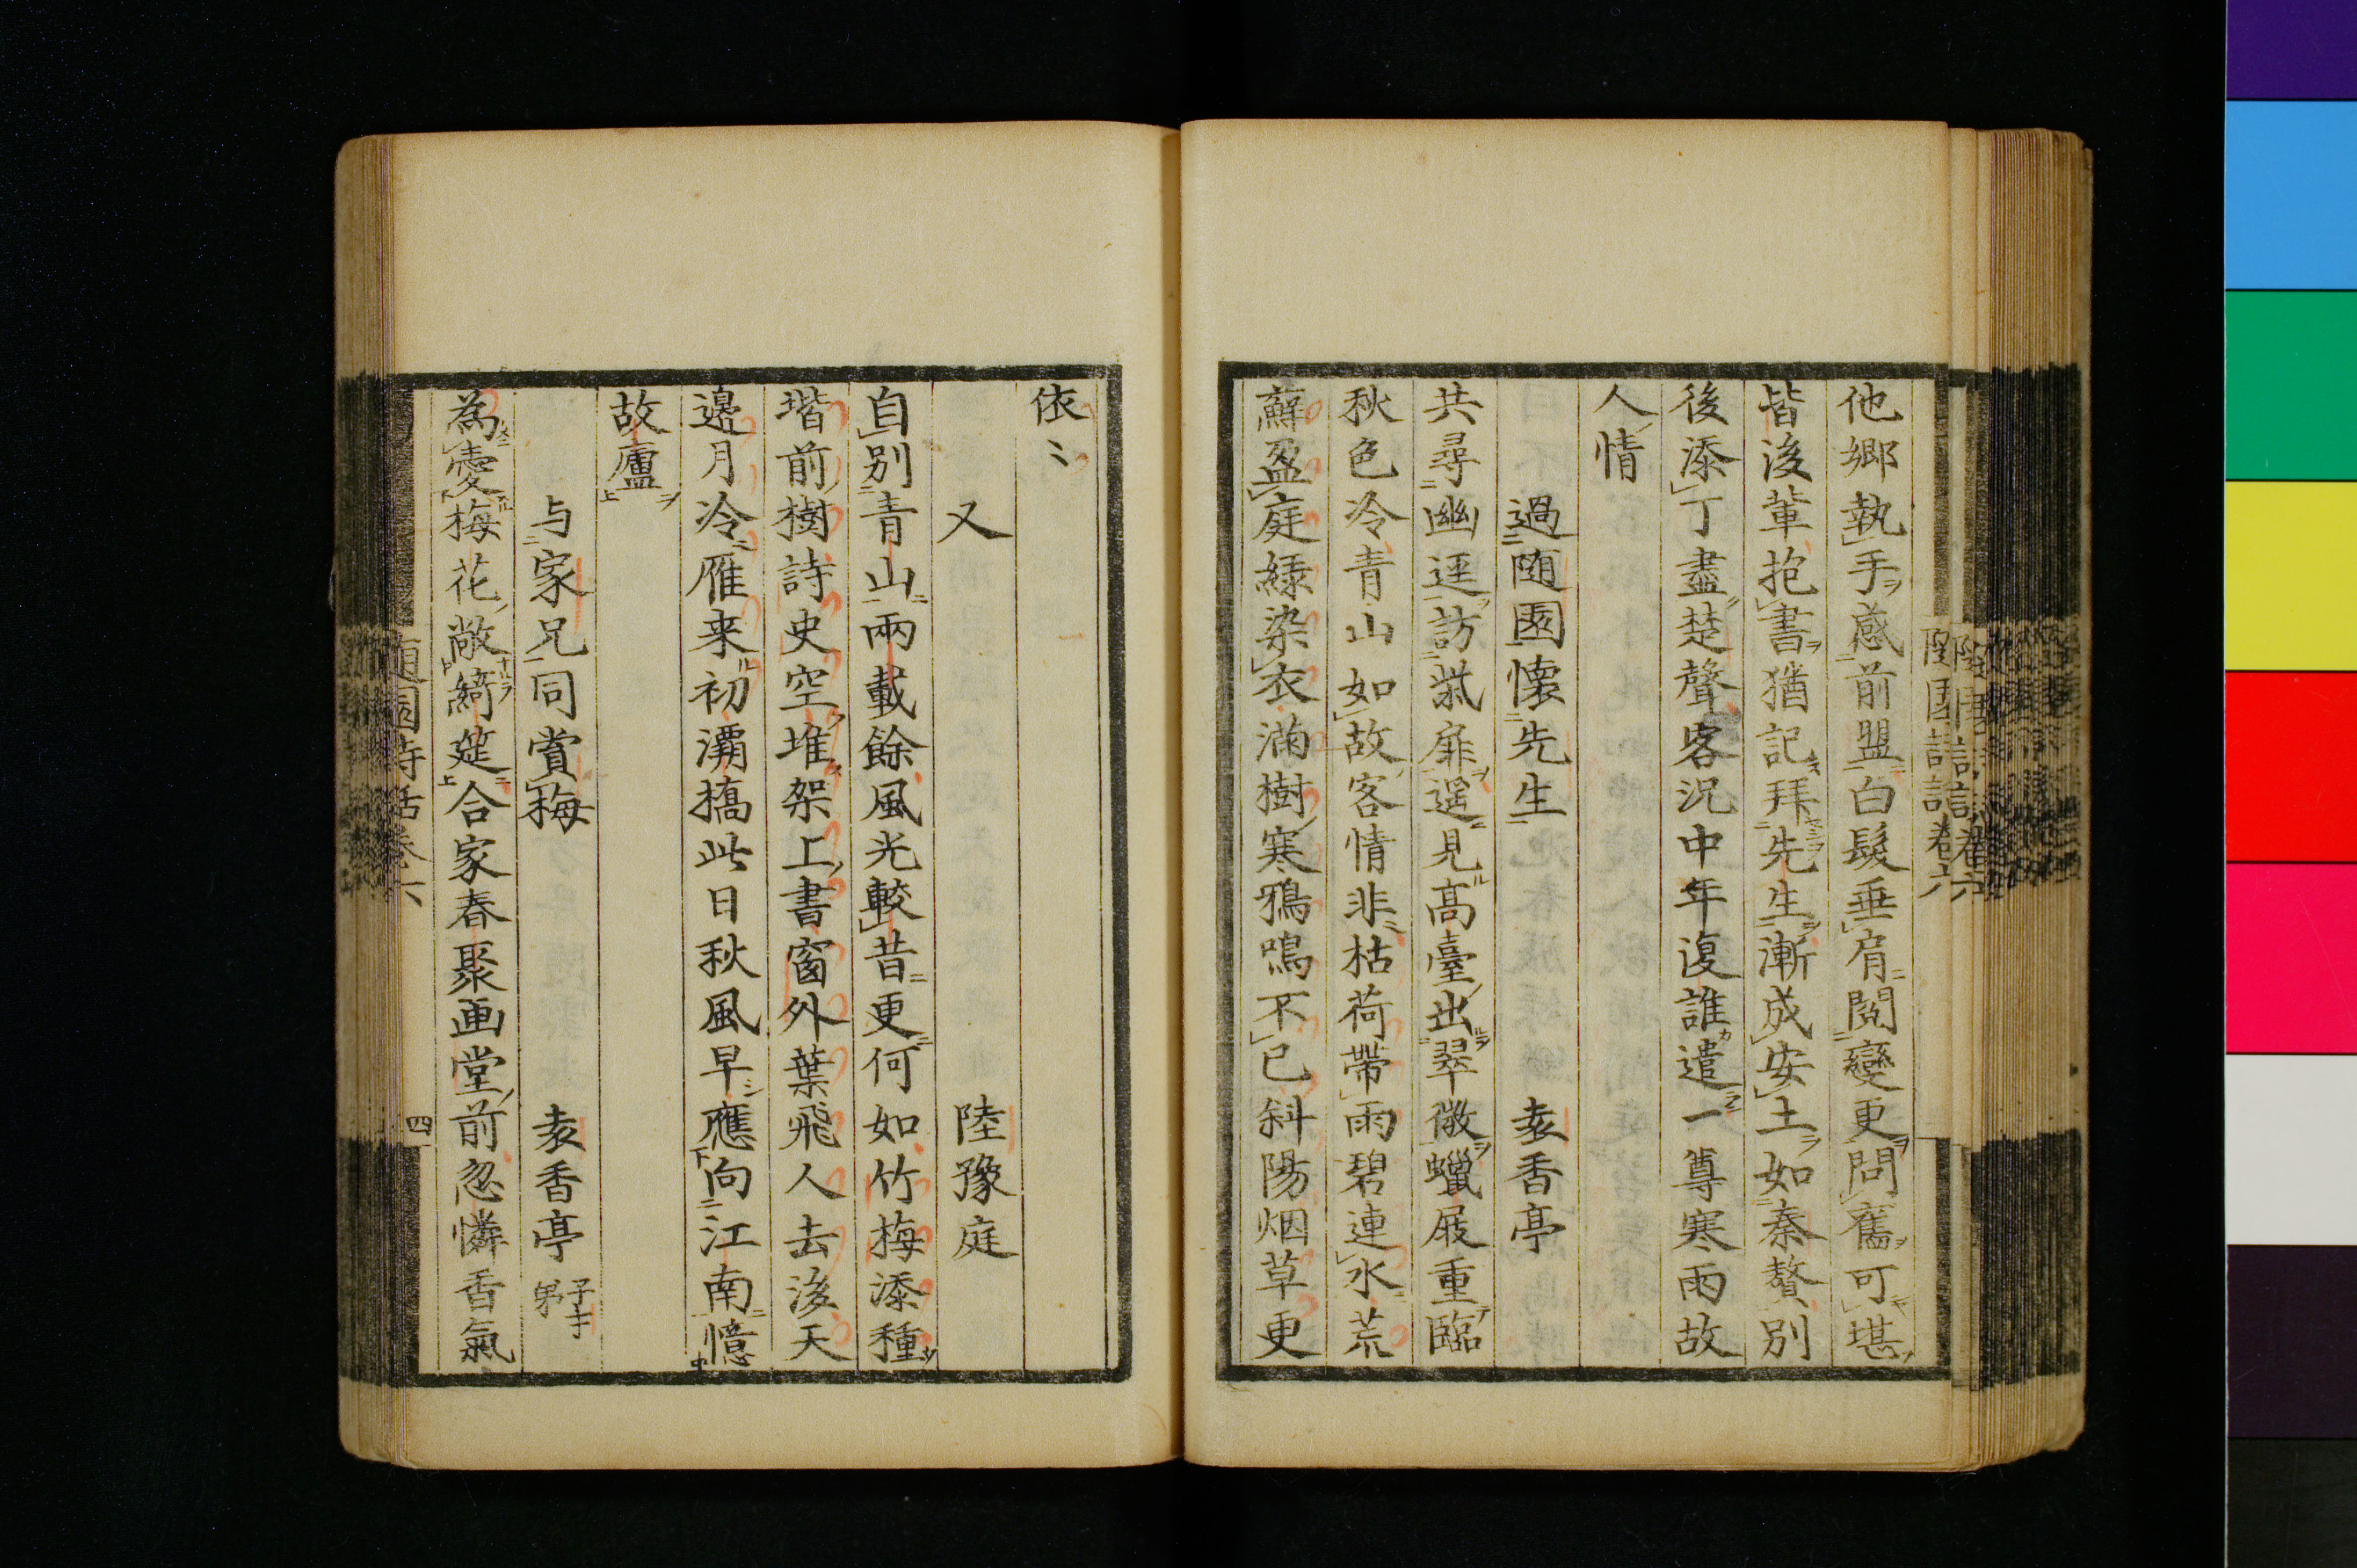 他郷執手感前盟白髮垂肩閲變更問舊可堪
皆後輩抱書猶記拜先生漸成安土如秦贅別
後添丁盡楚聲客況中年復誰遣一尊寒雨故
人情
過随園懐先生　袁香亭
共尋幽逕訪柴扉遥見高臺出翠微蠟屐重臨
秋色冷青山如故客情非枯荷帶雨碧連水荒
蘚盈庭緑染衣滿樹寒鴉鳴不已斜陽烟草更
依〻
又　陸豫庭
自別青山兩載餘風光較昔更何如竹梅添種
堦前樹詩史空堆架上書窗外葉飛人去後天
邊月冷雁来初灞橋此日秋風早應向江南憶
故廬
与家兄同賞梅　袁香亭
為愛梅花敞綺筵合家春聚画堂前忽憐香氣
随園詩話卷六
四